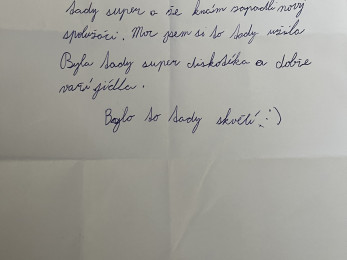 tady super a že k nám zapadli nový
spolužáci. Moc jsem si to tady užila
Byla tady super diskotéka a dobře
vaří jídla.
Bylo to tady skvělí :)